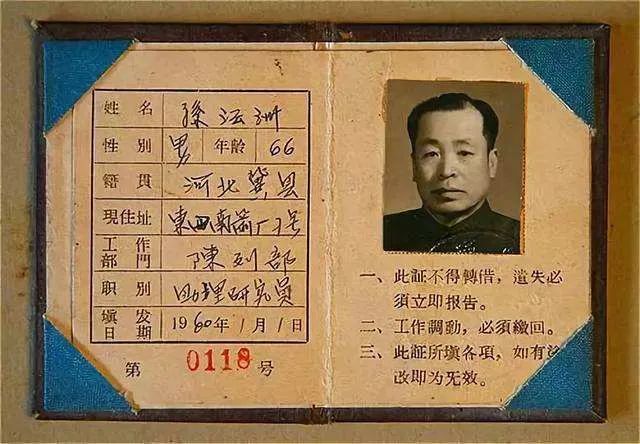 姓名 孫瀛洲
性别 男 年龄 66
籍貫 河北冀县
現住址 東四南箭厂7号
工作部門 陳列部
职别 助理研究員
填发日期 1960年1月1日
第 0118 号
一、此証不得轉借，遺失必
須立即报告。
二、工作調動，必須繳回。
三、此証所塡各項，如有塗
改即为无效。